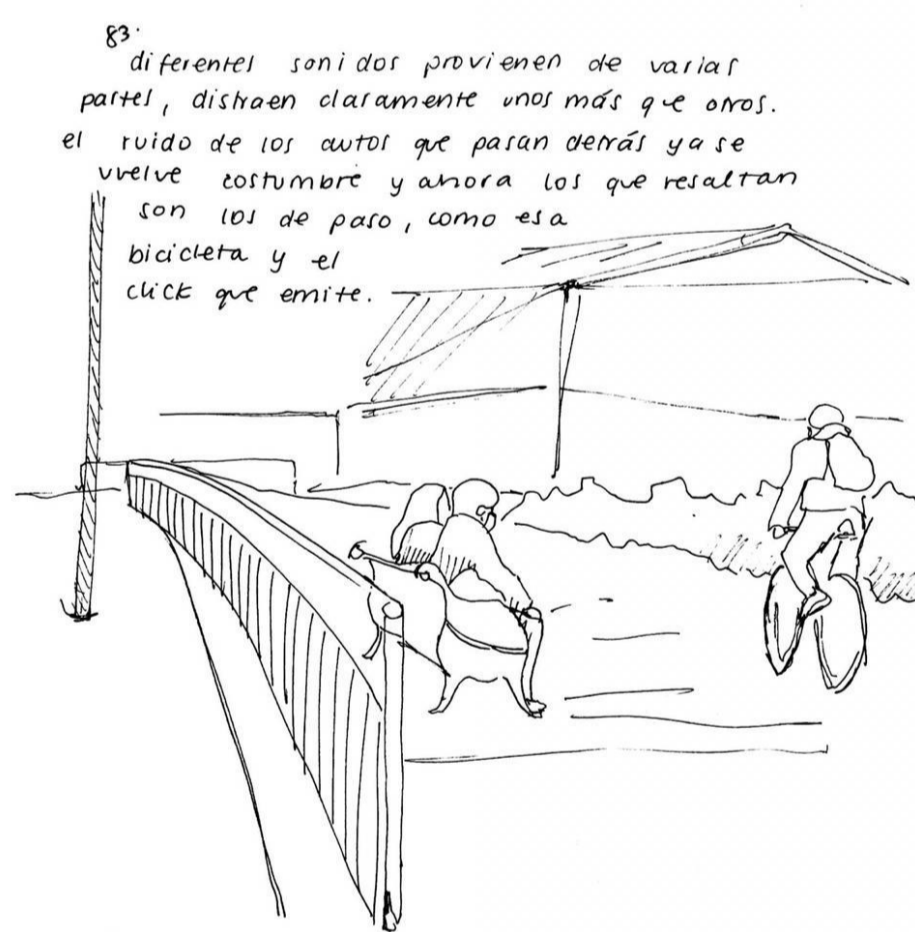 83.
diferentes sonidos provienen de varias
partes, distraen claramente unos más que otros.
el ruido de los autos que pasan detrás ya se
vuelve costumbre y ahora los que resaltan
son los de paso, como esa
bicicleta y el
click que emite.